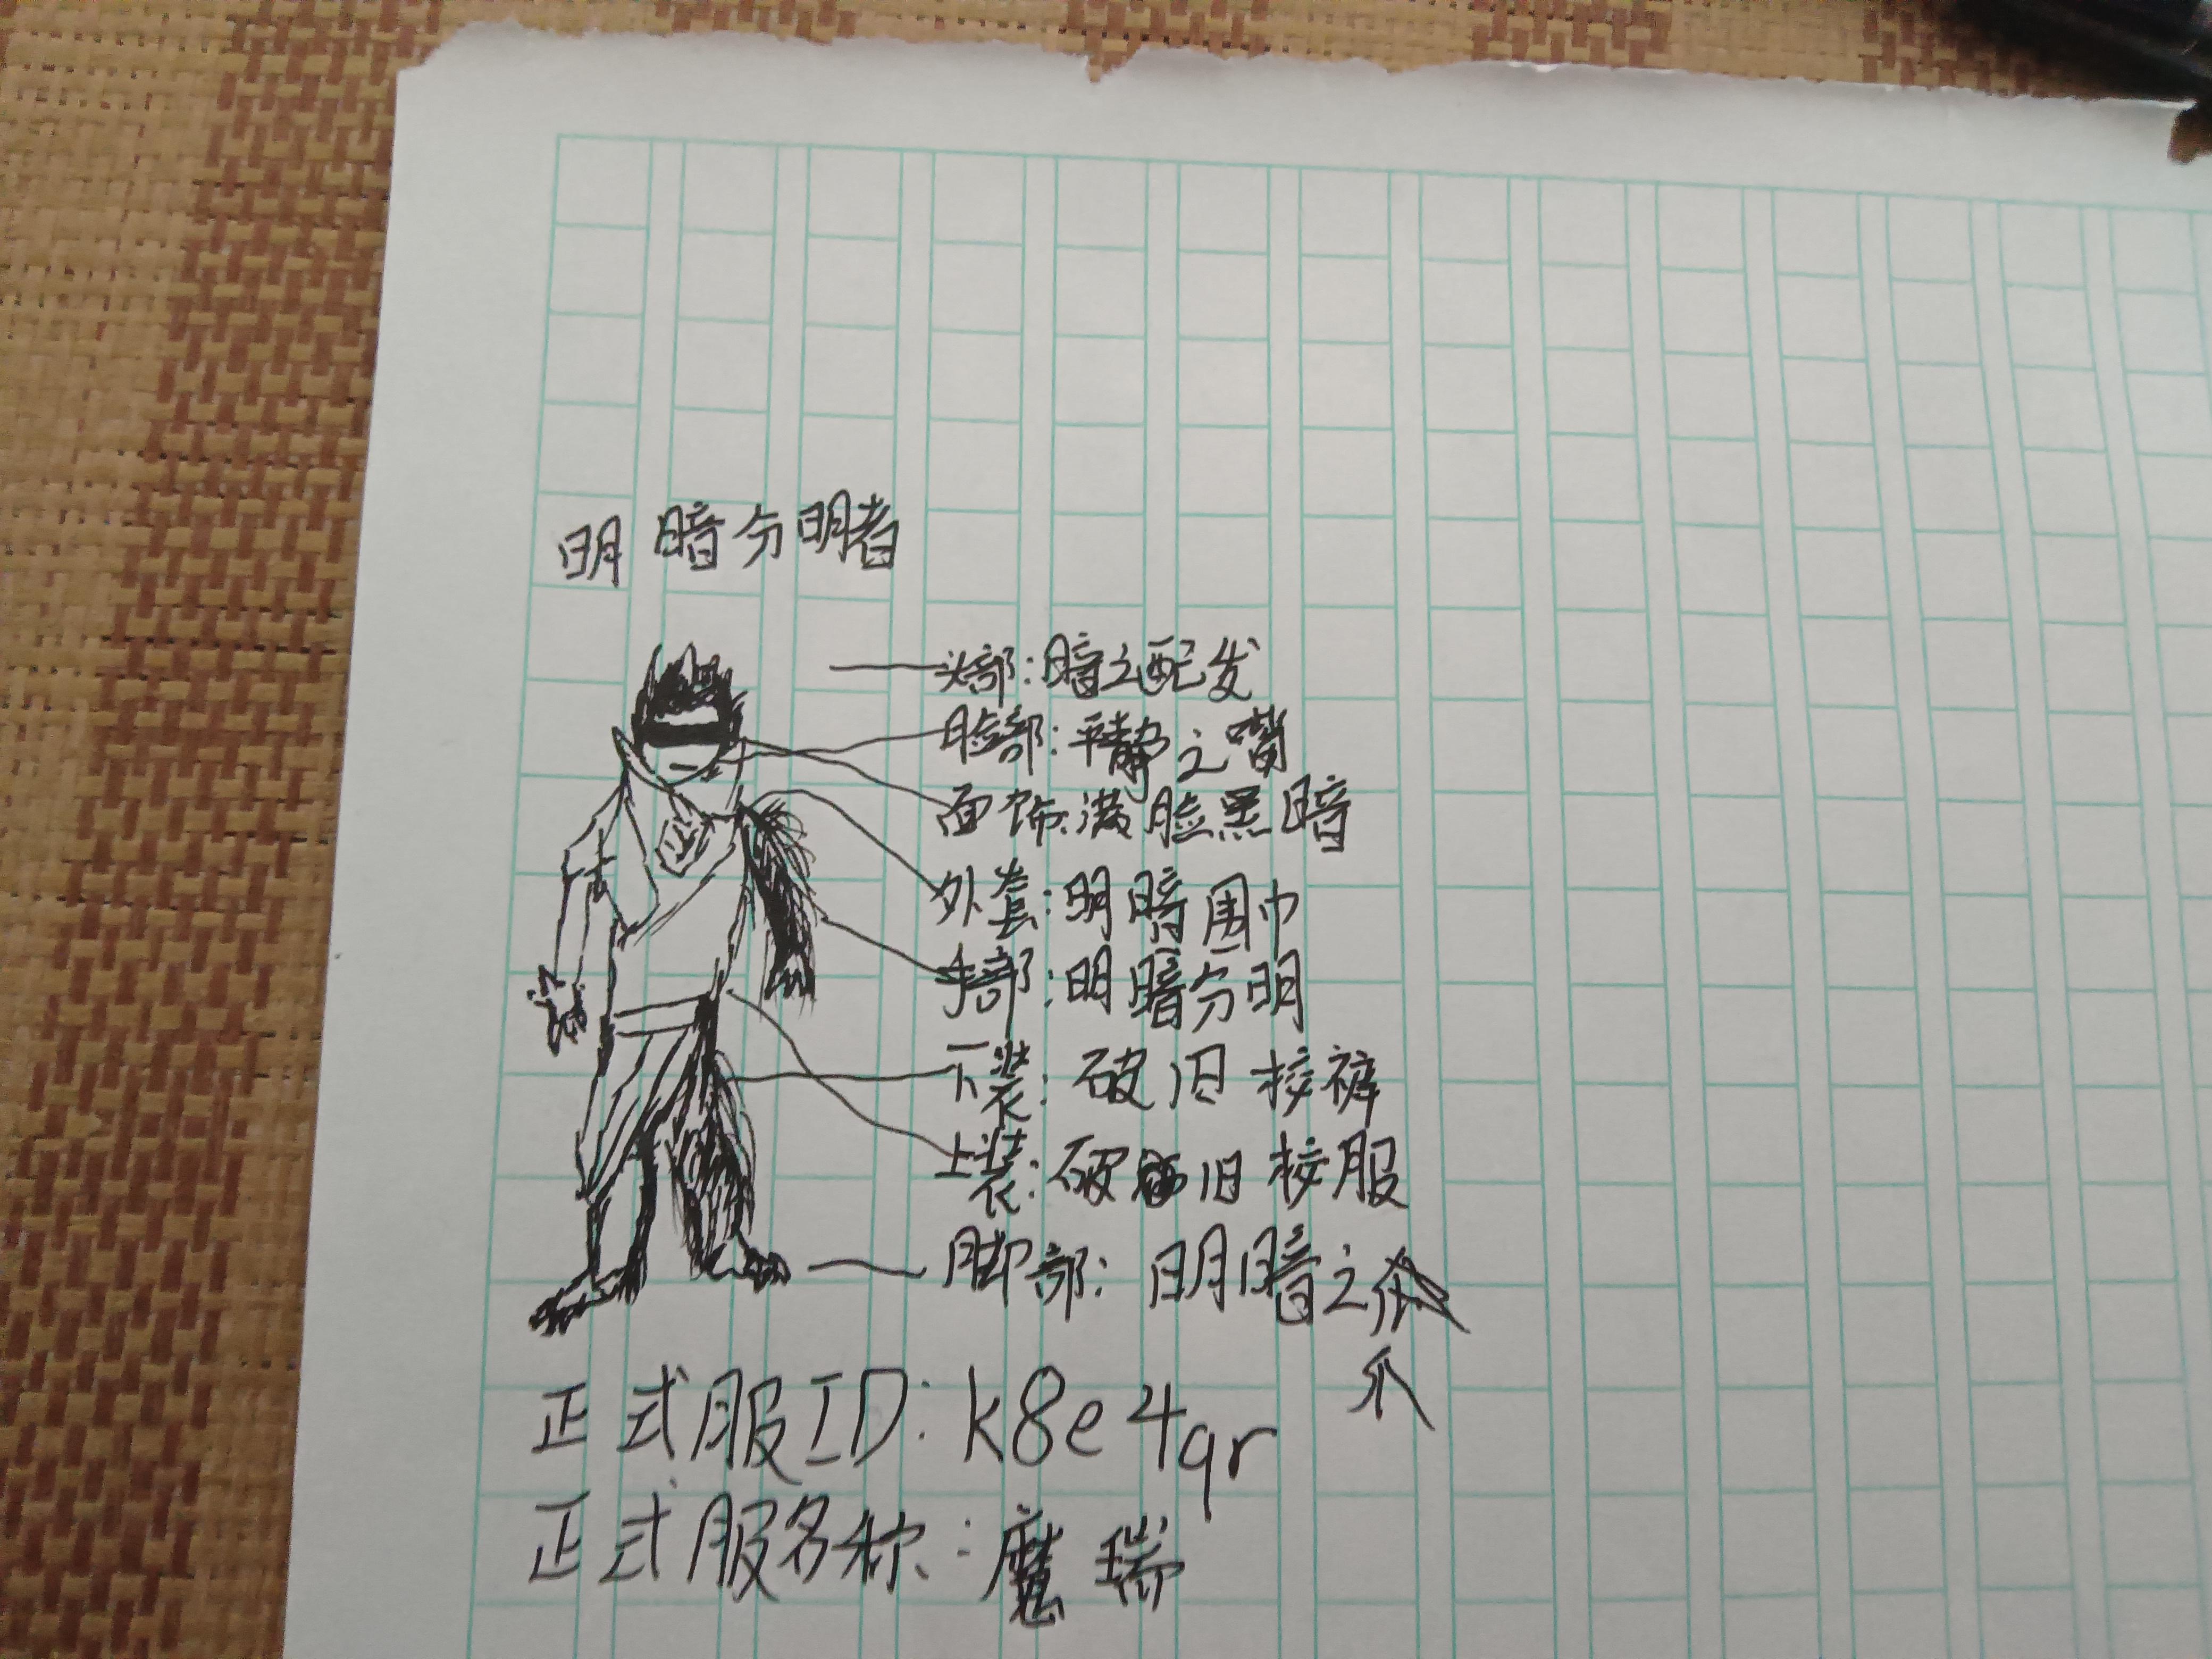 明暗分明者
头部：暗之配发
脸部：平静之嘴
面饰：满脸黑暗
外套：明暗围巾
手部：明暗分明
下装：破旧校裤
上装：破旧校服
脚部：明暗之爪
正式服ID：k8e4qr
正式服名称：魔瑞